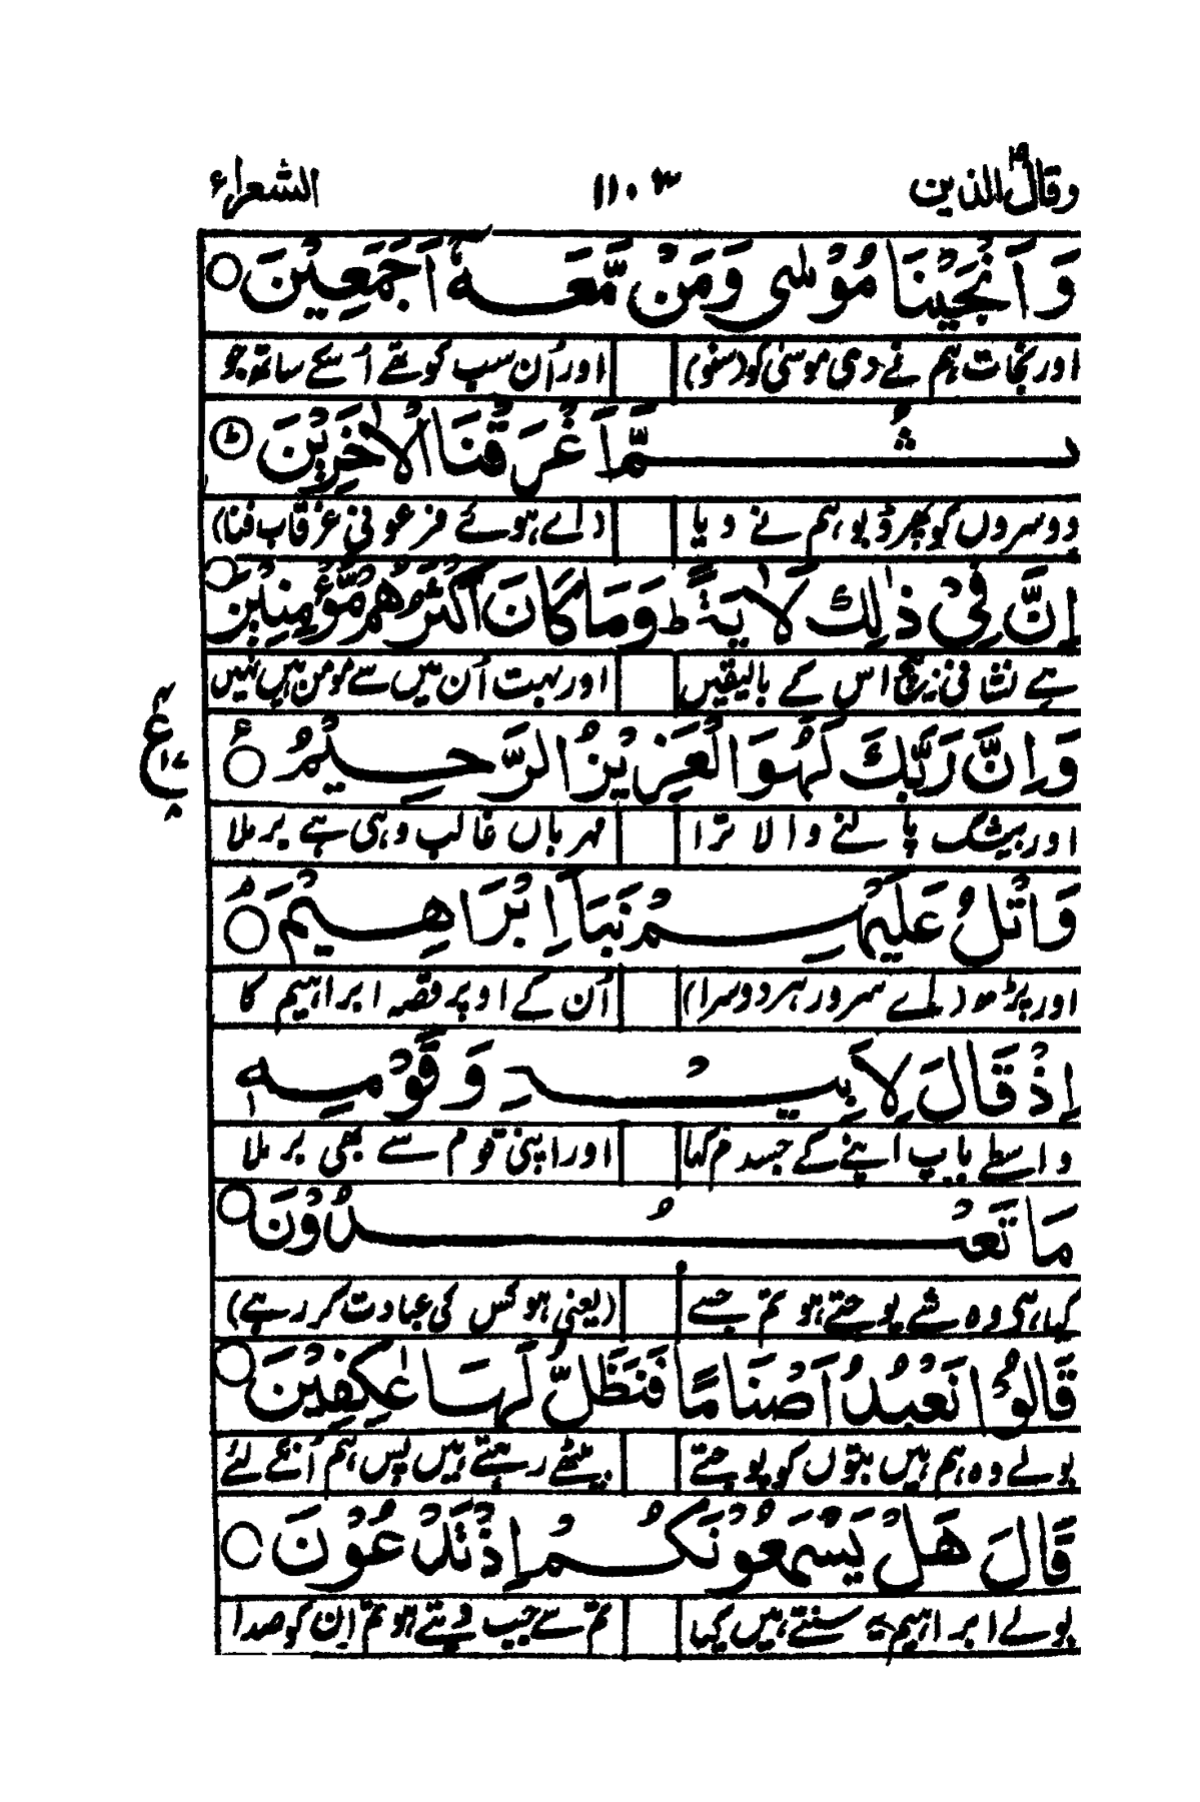 وقال الذین ۱۹ ۱۱۰۳ الشعراء
وَاَنْجَیْنَا مُوْسٰی وَمَنْ مَّعَهٗۤ اَجْمَعِیْنَ
اور نجات ہم نے دی موسیٰ کو (سنو) اور اُن سب کو تھے اُسکے ساتھ جو
ثُمَّ اَغْرَقْنَا الْاٰخَرِیْنَ ط
دوسروں کو پھر ڈبو ہم نے دیا (اے ہوئے فرعونی غرقاب فنا)
اِنَّ فِیْ ذٰلِكَ لَاٰیَةً ط وَمَا كَانَ اَكْثَرُهُمْ مُّؤْمِنِیْنَ
ہے نشانی بیچ اس کے بالیقیں اور بہت اُن میں سے مومن ہیں نہیں
وَاِنَّ رَبَّكَ لَهُوَ الْعَزِیْزُ الرَّحِیْمُ ع
اور بیشک پالنے والا ترا مہرباں غالب وہی ہے بر ملا
وَاتْلُ عَلَیْهِمْ نَبَاَ اِبْرَاهِیْمَ
اور پڑھو (اے سرور ہر دوسرا) اُن کے اوپر قصہ ابراہیم کا
اِذْ قَالَ لِاَبِیْهِ وَقَوْمِهٖ
واسطے باپ اپنے کے جسدم کہا اور اپنی قوم سے بھی بر ملا
مَا تَعْبُدُوْنَ
کیا ہی وہ شے پوجتے ہو تم جسے (یعنی ہو کس کی عبادت کر رہے)
قَالُوْا نَعْبُدُ اَصْنَامًا فَنَظَلُّ لَهَا عٰكِفِیْنَ
بولے وہ ہم ہیں بتوں کو پوجتے بیٹھے رہتے ہیں پس ہم اُنکے لئے
قَالَ هَلْ یَسْمَعُوْنَكُمْ اِذْ تَدْعُوْنَ
بولے ابراہیم یہ سنتے ہیں کیا تم سے جب دیتے ہو تم اِن کو صدا